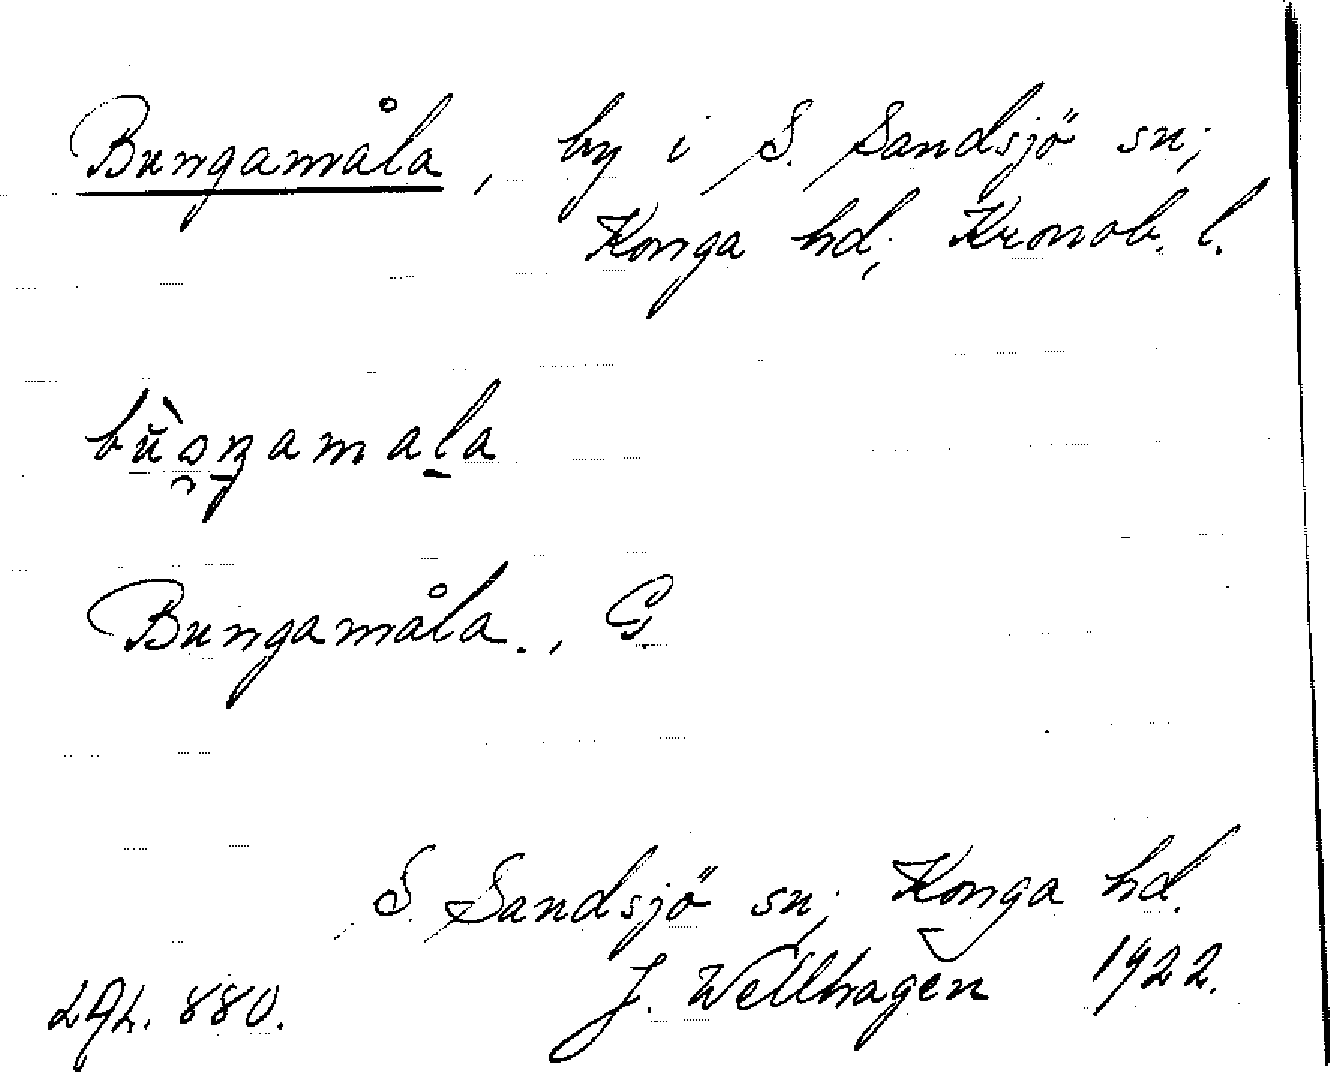 Bungamåla, by i S. Sandsjö sn;
Konga hd, Kronob. l.
Bungamåla., G.
S. Sandsjö sn; Konga hd.
J. Wellhagen 1922.
880.